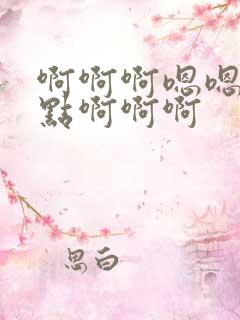 啊啊啊嗯嗯
點啊啊啊
思白